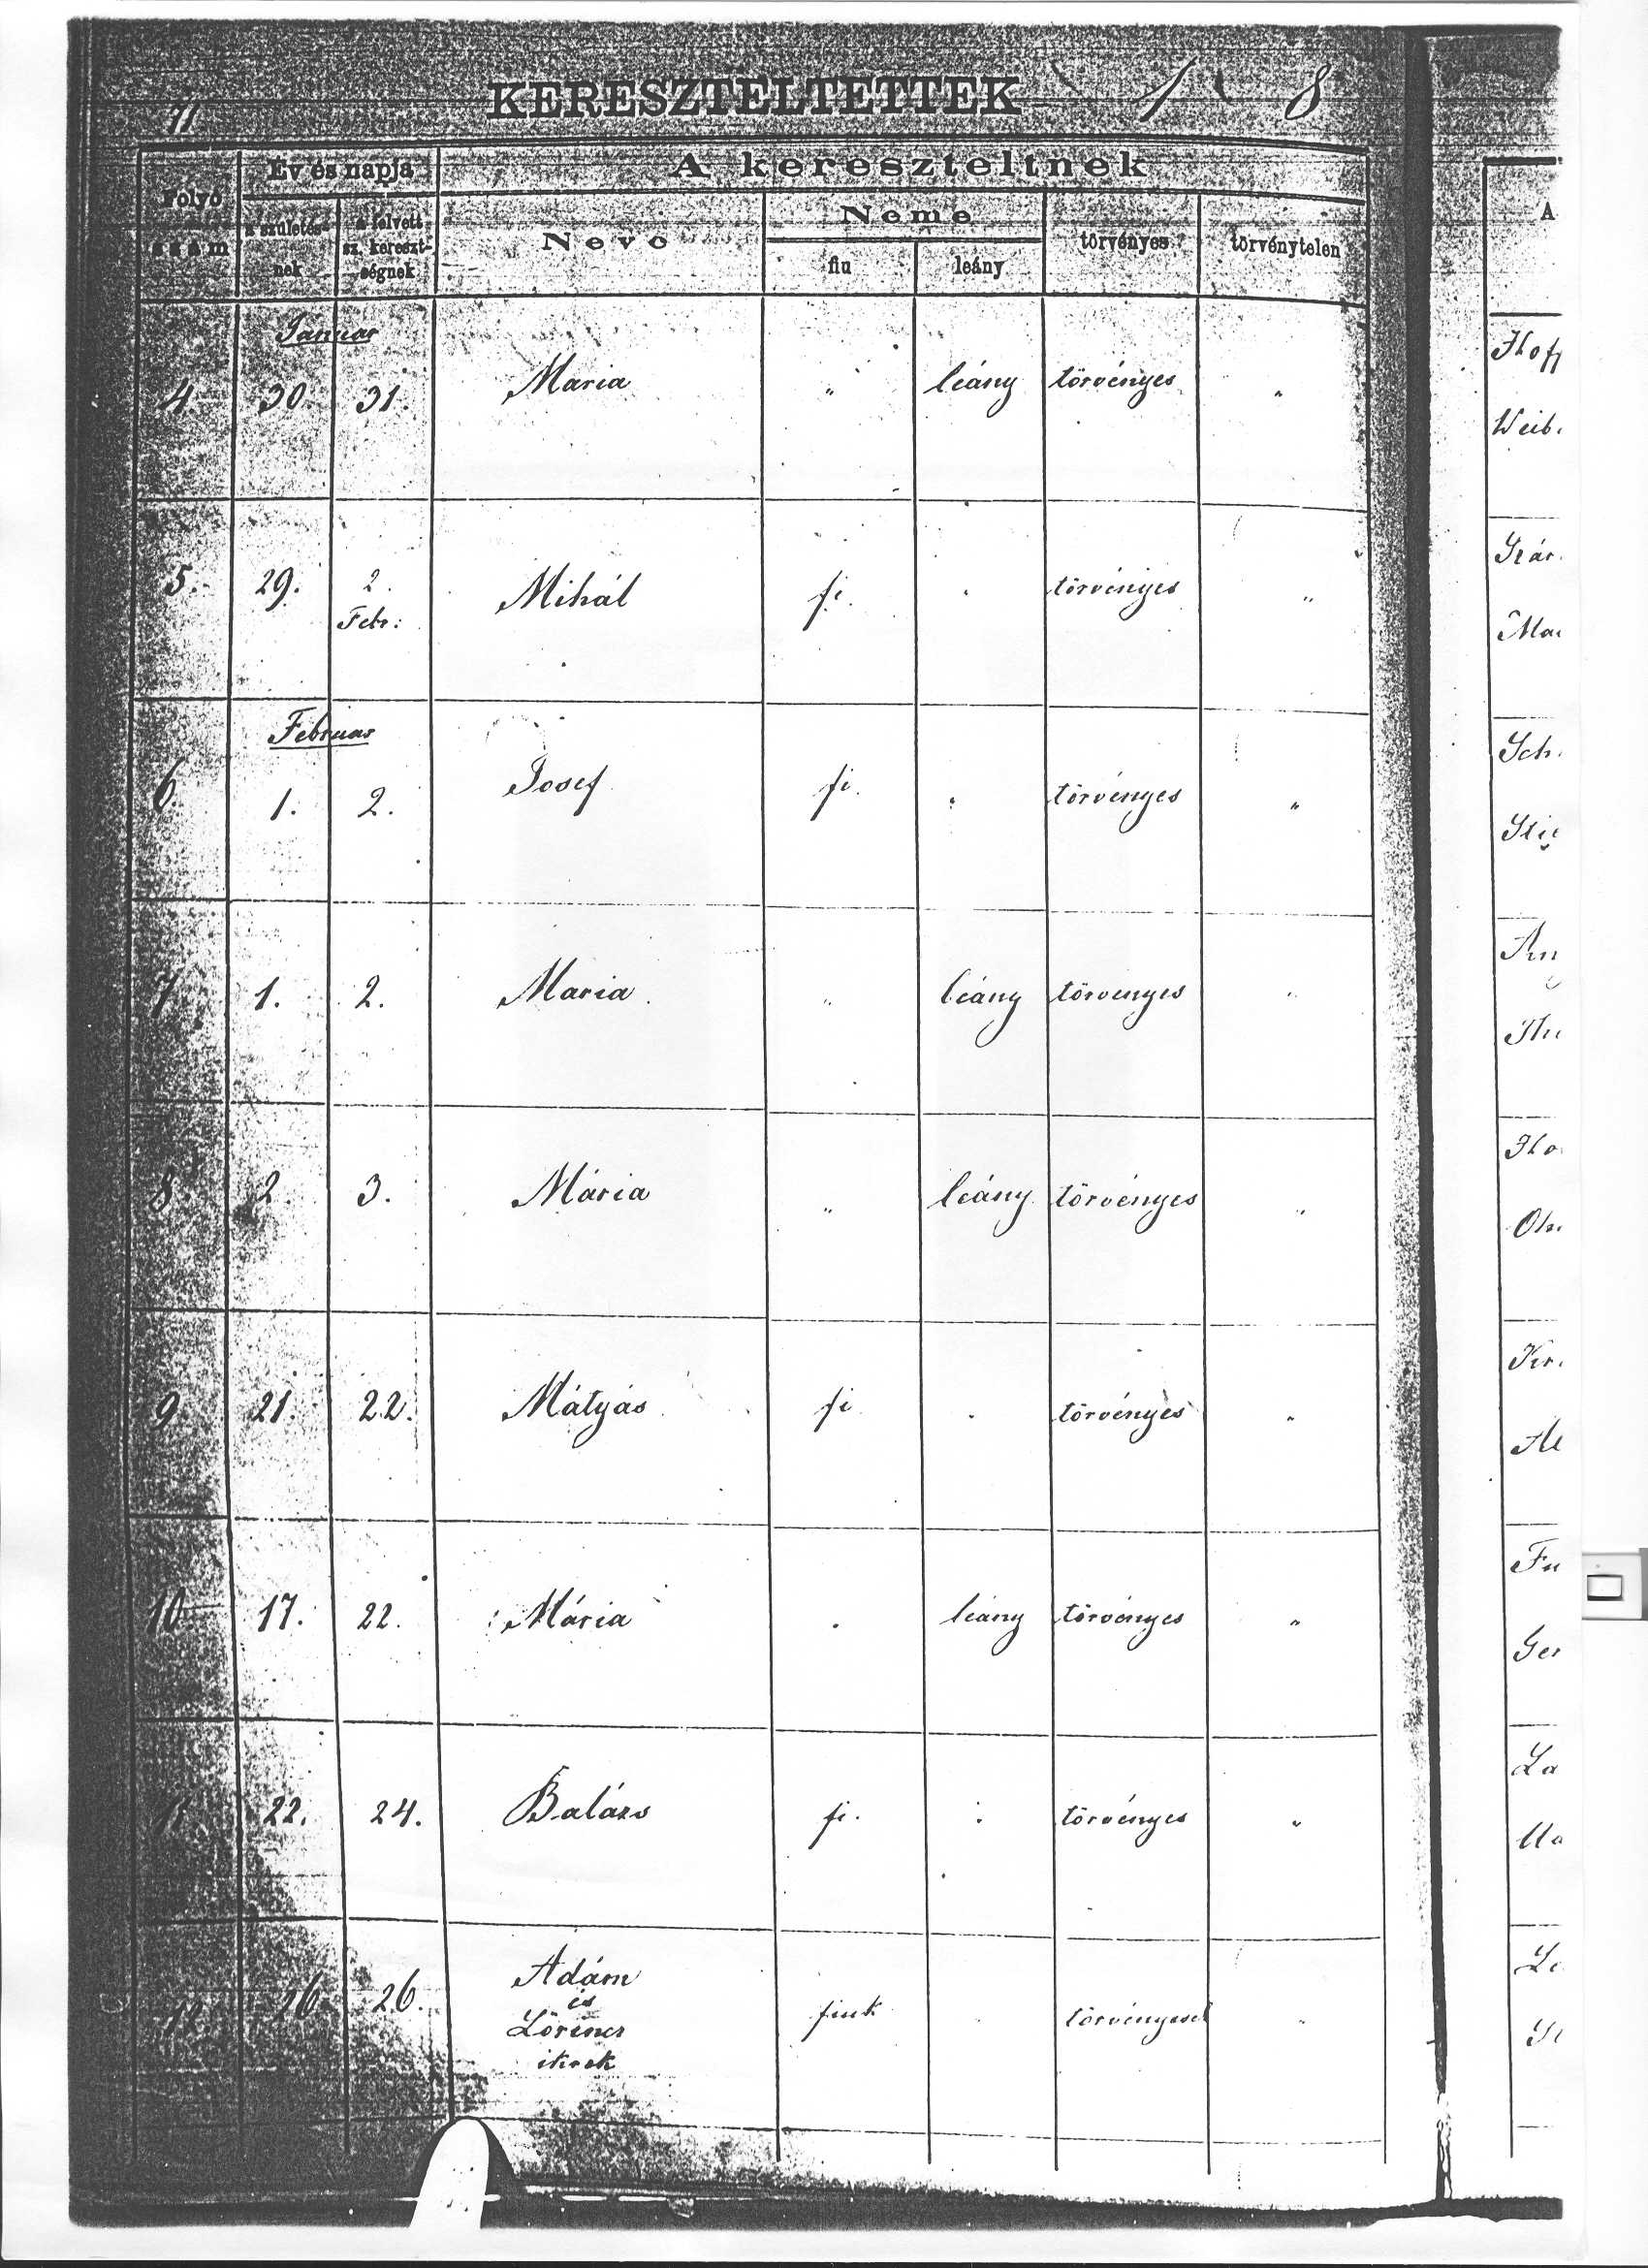 71
KERESZTELTETTEK 1 8
Folyó szám
Év és napja
a születés-
nek
a felvett
sz. kereszt-
ségnek
A kereszteltnek
Neve
Neme
fiu
leány
törvényes
törvénytelen
A
Januar
4 30. 31. Maria " leány törvényes "
5. 29. 2. Febr: Mihál fi. " törvényes "
Februar
6. 1. 2. Josef fi. " törvényes "
7 1. 2. Maria " leány törvenyes "
8. 2. 3. Mária " leány törvényes "
9 21. 22. Mátyás fi " törvényes "
10. 17. 22. Mária " leány törvényes "
11. 22. 24. Balázs fi. " törvényes "
12 26. 26. Adám
és
Lörincz
ikrek
fiuk " törvényesek "
Hof
Weib
Szár
Mar
Sch
Sti
An
Th
Ho
Kir
Fu
Ger
La
Ma
Le